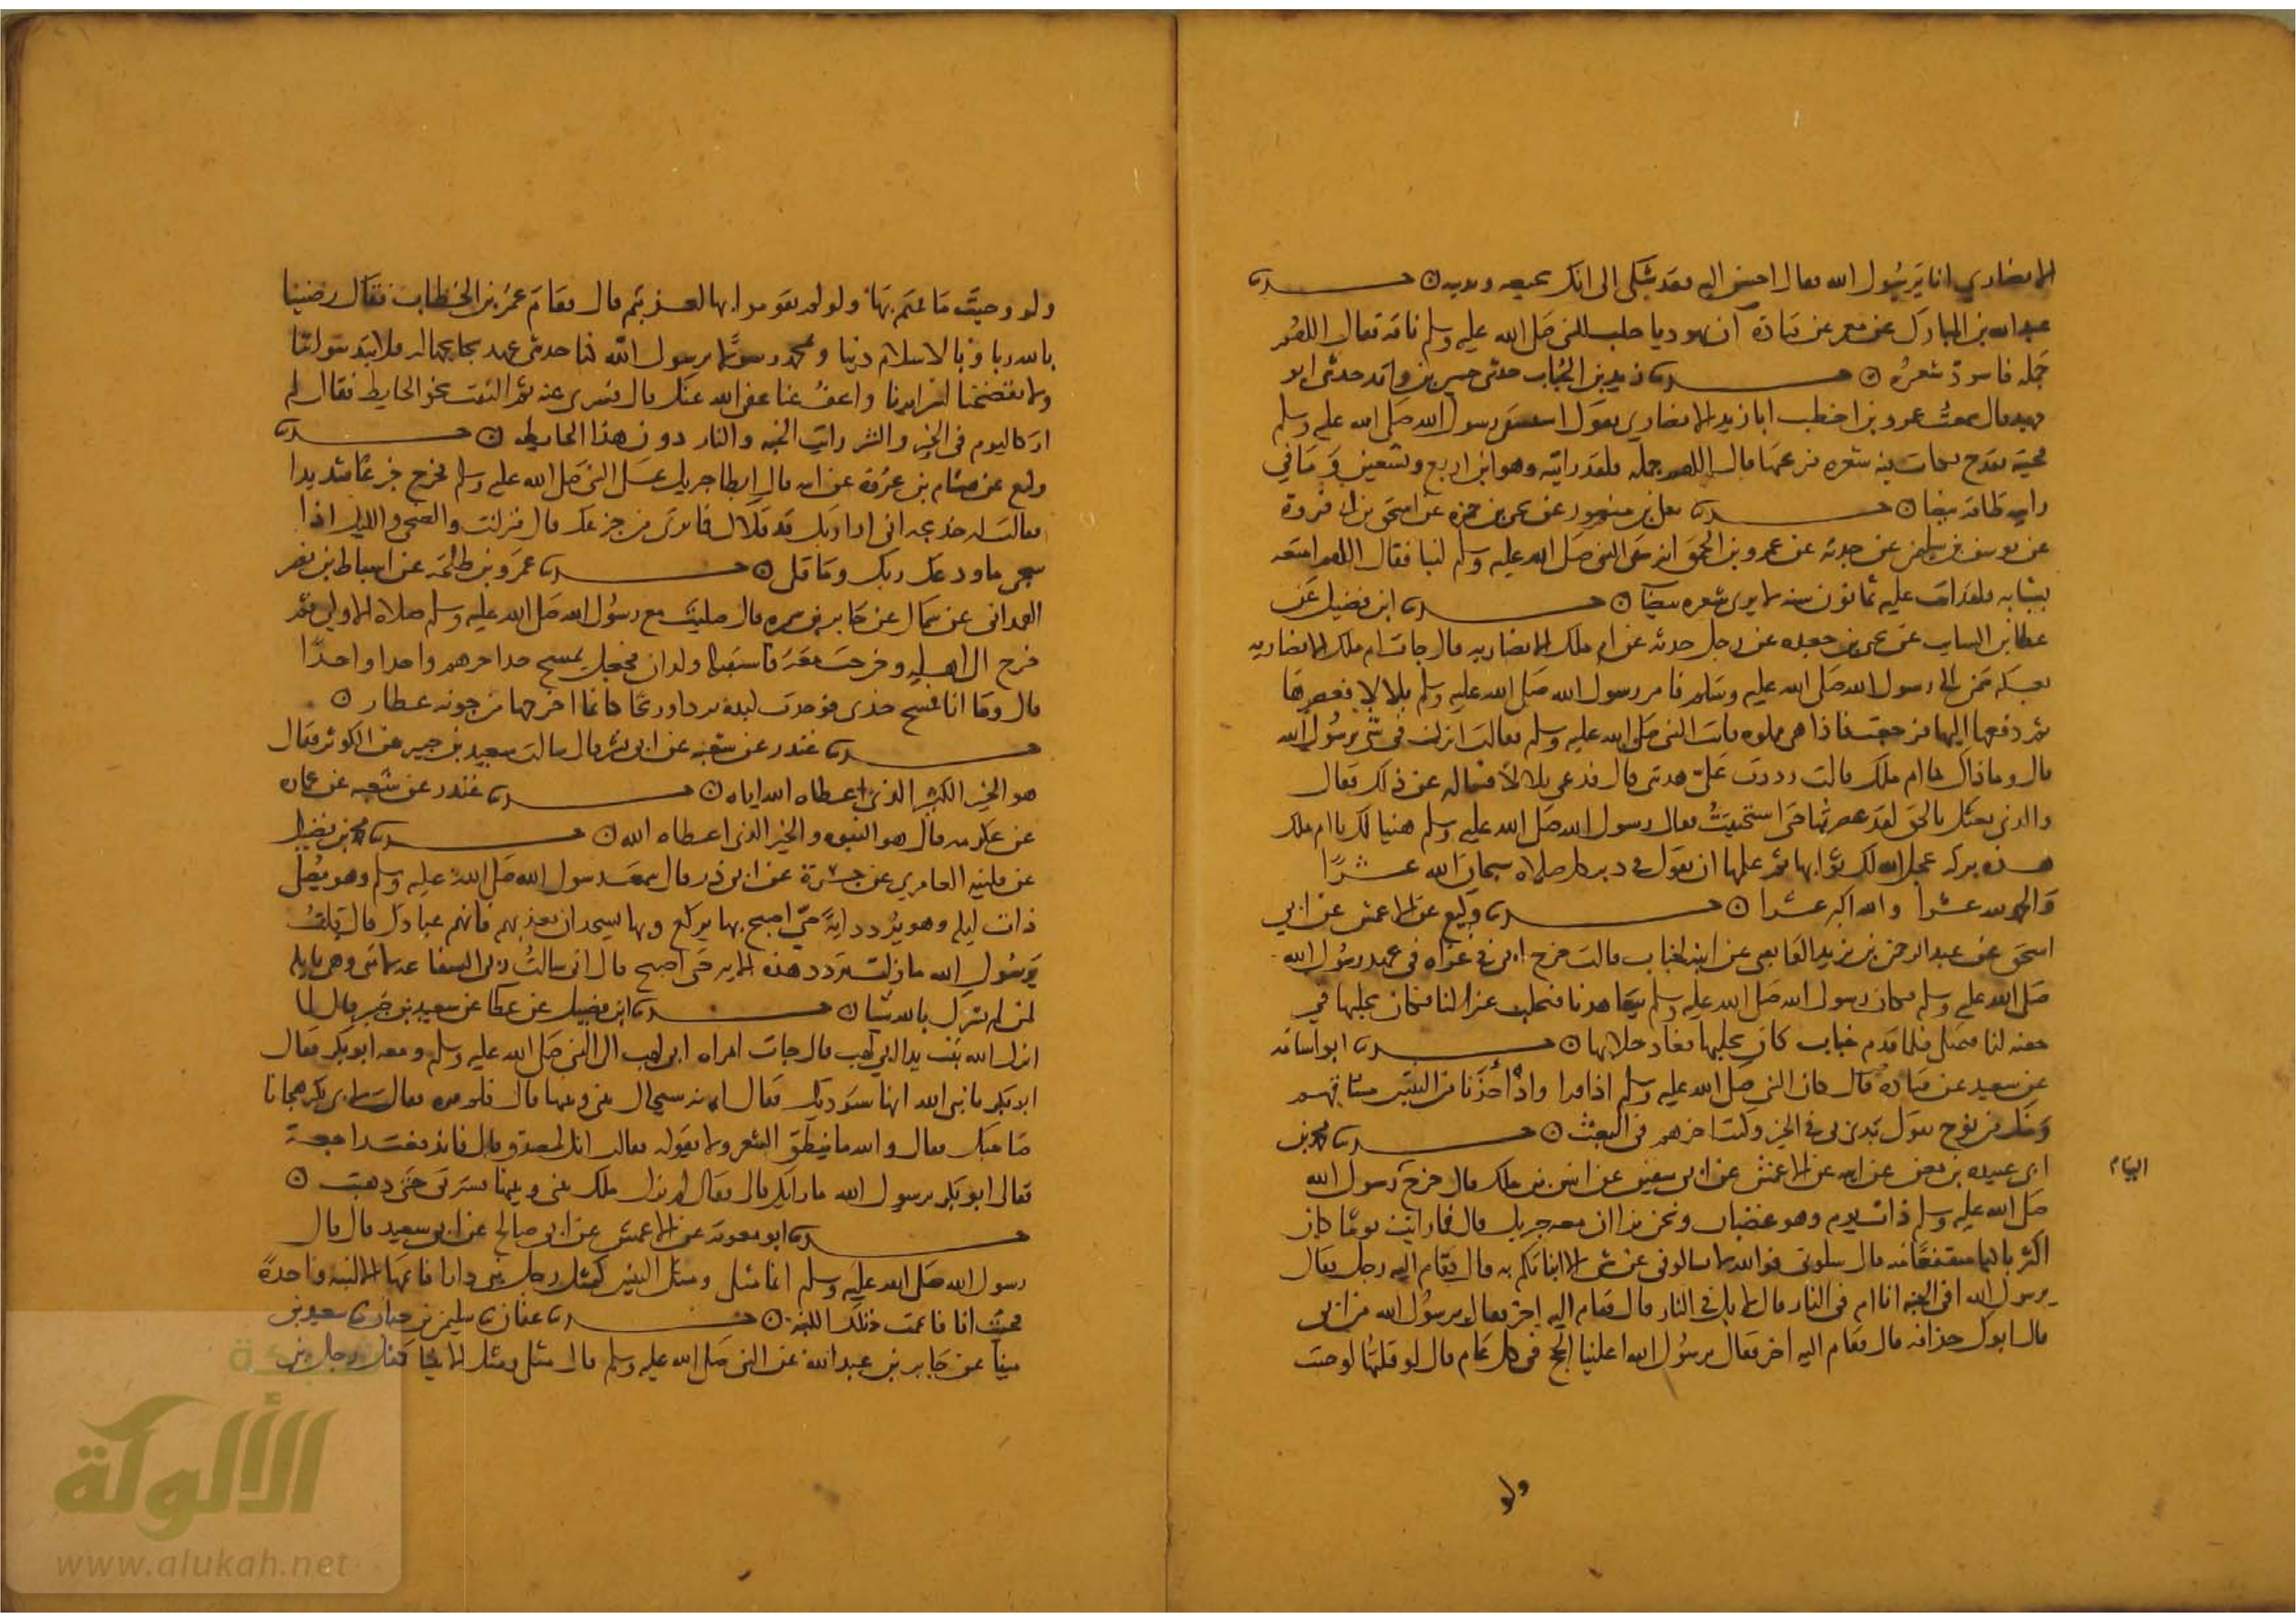 الانصاري انا يرسول الله فقال احسن اليه فقد شكى الى انك تجيعه وتديبه ں حدثنا
عبد الله بن المبارك عن معمر عن قتادة ان يهوديا حلب للنبي صلى الله عليه وسلم ناقة فقال اللهم
جمله فاسود شعره ں حدثنا زيد بن الحباب حدثني حسين بن واقد حدثني ابو
نهيك قال سمعت عمرو بن اخطب ابا زيد الانصاري يقول استسقى رسول الله صلى الله عليه وسلم
فجيته بقدح فكانت فيه شعره فنزعتها قال اللهم جمله فلقد رايته وهو ابن اربع وتسعين وما في
راسه طاقة بيضا ں حدثنا يعلى بن منصور عن يحيى بن حمزه عن اسحق بن ابي فروة
عن يوسف بن سليمن عن جدته عن عمرو بن الحمق انه سقى النبي صلى الله عليه وسلم لبنا فقال اللهم امتعه
بشبابه فلقد اتت عليه ثمانون سنه لا يرى شعره بيضا ں حدثنا ابن فضيل عن
عطا بن السايب عن يحيى بن جعده عن رجل حدثه عن ام ملك الانصاريه قال جات ام ملك الانصاريه
بعكه سمن الى رسول الله صلى الله عليه وسلم فامر رسول الله صلى الله عليه وسلم بلالا فعصرها
ثم دفعها اليها فرجعت فاذا هي مملوه فاتت النبي صلى الله عليه وسلم فقالت انزل في شي يرسول الله
قال وما ذاك يا ام ملك قالت رددت علي هدتي قال فدعى بلالا فساله عن ذلك فقال
والذي بعثك بالحق لقد عصرتها حتى استحييت فقال رسول الله صلى الله عليه وسلم هنيا لك يا ام ملك
هذه بركه عجل الله لك ثوابها ثم علمها ان تقول في دبر كل صلاه سبحان الله عشرا
والحمد لله عشرا والله اكبر عشرا ں حدثنا وكيع عن الاعمش عن ابي
اسحق عن عبد الرحمن بن يزيد الفايشي عن ابنه لخباب قالت خرج ابي في غزاه في عهد رسول الله
صلى الله عليه وسلم فكان رسول الله صلى الله عليه وسلم يتعاهدنا فيحلب عنزا لنا فكان يحلبها في
جفنه لنا فتمتلي فلما قدم خباب كان يحلبها فعاد حلابها ں حدثنا ابو اسامه
عن سعيد عن قتاده قال كان النبي صلى الله عليه وسلم اذا قرا واذ اخذنا من النبيين ميثاقهم
ومنك ومن نوح يقول بدي بي في الخير وكنت اخرهم في البعث ں حدثنا محمد بن
ابي عبيده بن معن عن ابيه عن الاعمش عن ابي سفين عن انس بن ملك قال خرج رسول الله
صلى الله عليه وسلم ذات يوم وهو غضبان ونحن نرى ان معه جبريل قال فما رايت يوما كان
اكثر باكيا متقنعا منه قال سلوني فوالله لا تسالوني عن شي الا انباتكم به قال فقام اليه رجل فقال
يرسول الله افي الجنه انا ام في النار قال لا بل في النار قال فقام اليه اخر فقال يرسول الله من ابي
قال ابوك حذافه قال فقام اليه اخر فقال يرسول الله اعلينا الحج في كل عام قال لو قلتها لوجبت
ولو
ولو وجبت ما قمتم بها ولو لم تقوموا بها لعذبتم قال فقام عمر بن الخطاب فقال رضينا
بالله ربا وبالاسلام دينا وبمحمد رسولا يرسول الله كنا حديثي عهد بجاهليه فلا تبد سواتنا
ولا تفضحنا لسرايرنا واعف عنا عفى الله عنك قال فسرى عنه ثم التفت نحو الحايط فقال لم
ار كاليوم في الخير والشر رايت الجنه والنار دون هذا الحايط ں حدثنا
وكيع عن هشام بن عروة عن ابيه قال ابطا جبريل على النبي صلى الله عليه وسلم فجزع جزعا شديدا
فقالت له خديجه اني ارى ربك قد قلاك مما يرى من جزعك قال فنزلت والضحى والليل اذا
سجى ما ودعك ربك وما قلى ں حدثنا عمرو بن طلحه عن اسباط بن نصر
الهمداني عن سماك عن جابر بن سمره قال صليت مع رسول الله صلى الله عليه وسلم صلاه الاولى ثم
خرج الى اهله وخرجت معه فاستقبله ولدان فجعل يمسح خدا حدهم واحدا واحدا
قال وما انا فمسح خدي فوجدت ليده بردا وريحا كانما اخرجها من جونه عطار ں
حدثنا غندر عن شعبه عن ابي بشر قال سالت سعيد بن جبير عن الكوثر فقال
هو الخير الكثير الذي اعطاه الله اياه ں حدثنا غندر عن شعبه عن عماره
عن عكرمه قال هو النبوه والخير الذي اعطاه الله ں حدثنا محمد بن فضيل
عن فليت العامري عن جسرة عن ابي ذر قال سمعت رسول الله صلى الله عليه وسلم وهو يصلي
ذات ليله وهو يردد ايه حتى اصبح بها يركع وبها يسجد ان تعذبهم فانهم عبادك قال قلت
يرسول الله ما زلت تردد هذه الايه حتى اصبح قال اني سالت ربي الشفاعه لامتي وهي نايله
لمن لم يشرك بالله شيا ں حدثنا ابن فضيل عن عطا عن سعيد بن جبير قال لما
انزل الله تبت يدا ابي لهب قال جات امراه ابي لهب الى النبي صلى الله عليه وسلم ومعه ابو بكر فقال
ابو بكر يا نبي الله انها ستوذيك فقال انه سيحال بيني وبينها قال فلم تره فقالت لابي بكر هجانا
صاحبك فقال والله ما ينطق الشعر ولا يقوله فقالت انك لمصدق قال فاندفعت راجعة
فقال ابو بكر يرسول الله ما راتك قال فقال لم يزل ملك بيني وبينها يسترني حتى ذهبت ں
حدثنا ابو معوية عن الاعمش عن ابي صالح عن ابي سعيد قال قال
رسول الله صلى الله عليه وسلم انما مثلي ومثل النبيين كمثل رجل بنى دارا فاتمها الا لبنه واحدة
فجيت انا فاتممت تلك اللبنه ں حدثنا عفان ثنا سليمن بن حيان ثنا سعيد بن
مينا عن جابر بن عبد الله عن النبي صلى الله عليه وسلم قال مثلي ومثل الانبيا كمثل رجل بنى
شبكة
الألوكة
www.alukah.net